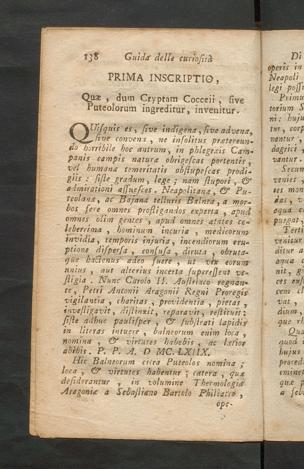 138 Guida delle curiosità
PRIMA INSCRIPTIO,
Quæ, dum Cryptam Cocceii, sive
Puteolorum ingreditur, invenitur.
QUisquis es, sive indigena, sive advena,
sive convena, ne insolitus prætereun-
do horribile hoc antrum, in phlegræis Cam-
panis campis naturæ obrigescas portentis,
vel humanæ temeritatis obstupescas prodi-
giis: siste gradum, lege; nam stupori, &
admirationi assuesces. Neapolitana, & Pu-
teolana, ac Bajana telluris Balnea, a mor-
bos fere omnes profligandos experta, apud
omnes olim gentes, apud omnes ætates ce-
leberrima, hominum incuria, medicorum
invidia, temporis injuria, incendiorum eru-
ptione dispersa, confusa, diruta, obruta-
que hactenus adeo fuere, ut vix eorum
unius, aut alterius incerta superessent ve-
stigia. Nunc Carolo II. Austriaco regnan-
te, Petri Antonii Aragonii Regni Proregis
vigilantia, charitas, providentia, pietas
investigavit, distinxit, reparavit, restituit:
siste adhuc paulisper, & subjecti lapidis
in literas intuere, balneorum enim loca
nomina, & virtutes habebis, ac lætior
abibis. P. P. A. D MC·LXIIX.
Hic Balneorum circa Puteolos nomina;
loca, & virtutes habentur; cætera, quæ
desiderantur, in volumine Thermologia
Aragonia a Sebastiano Bartolo Philiatro,